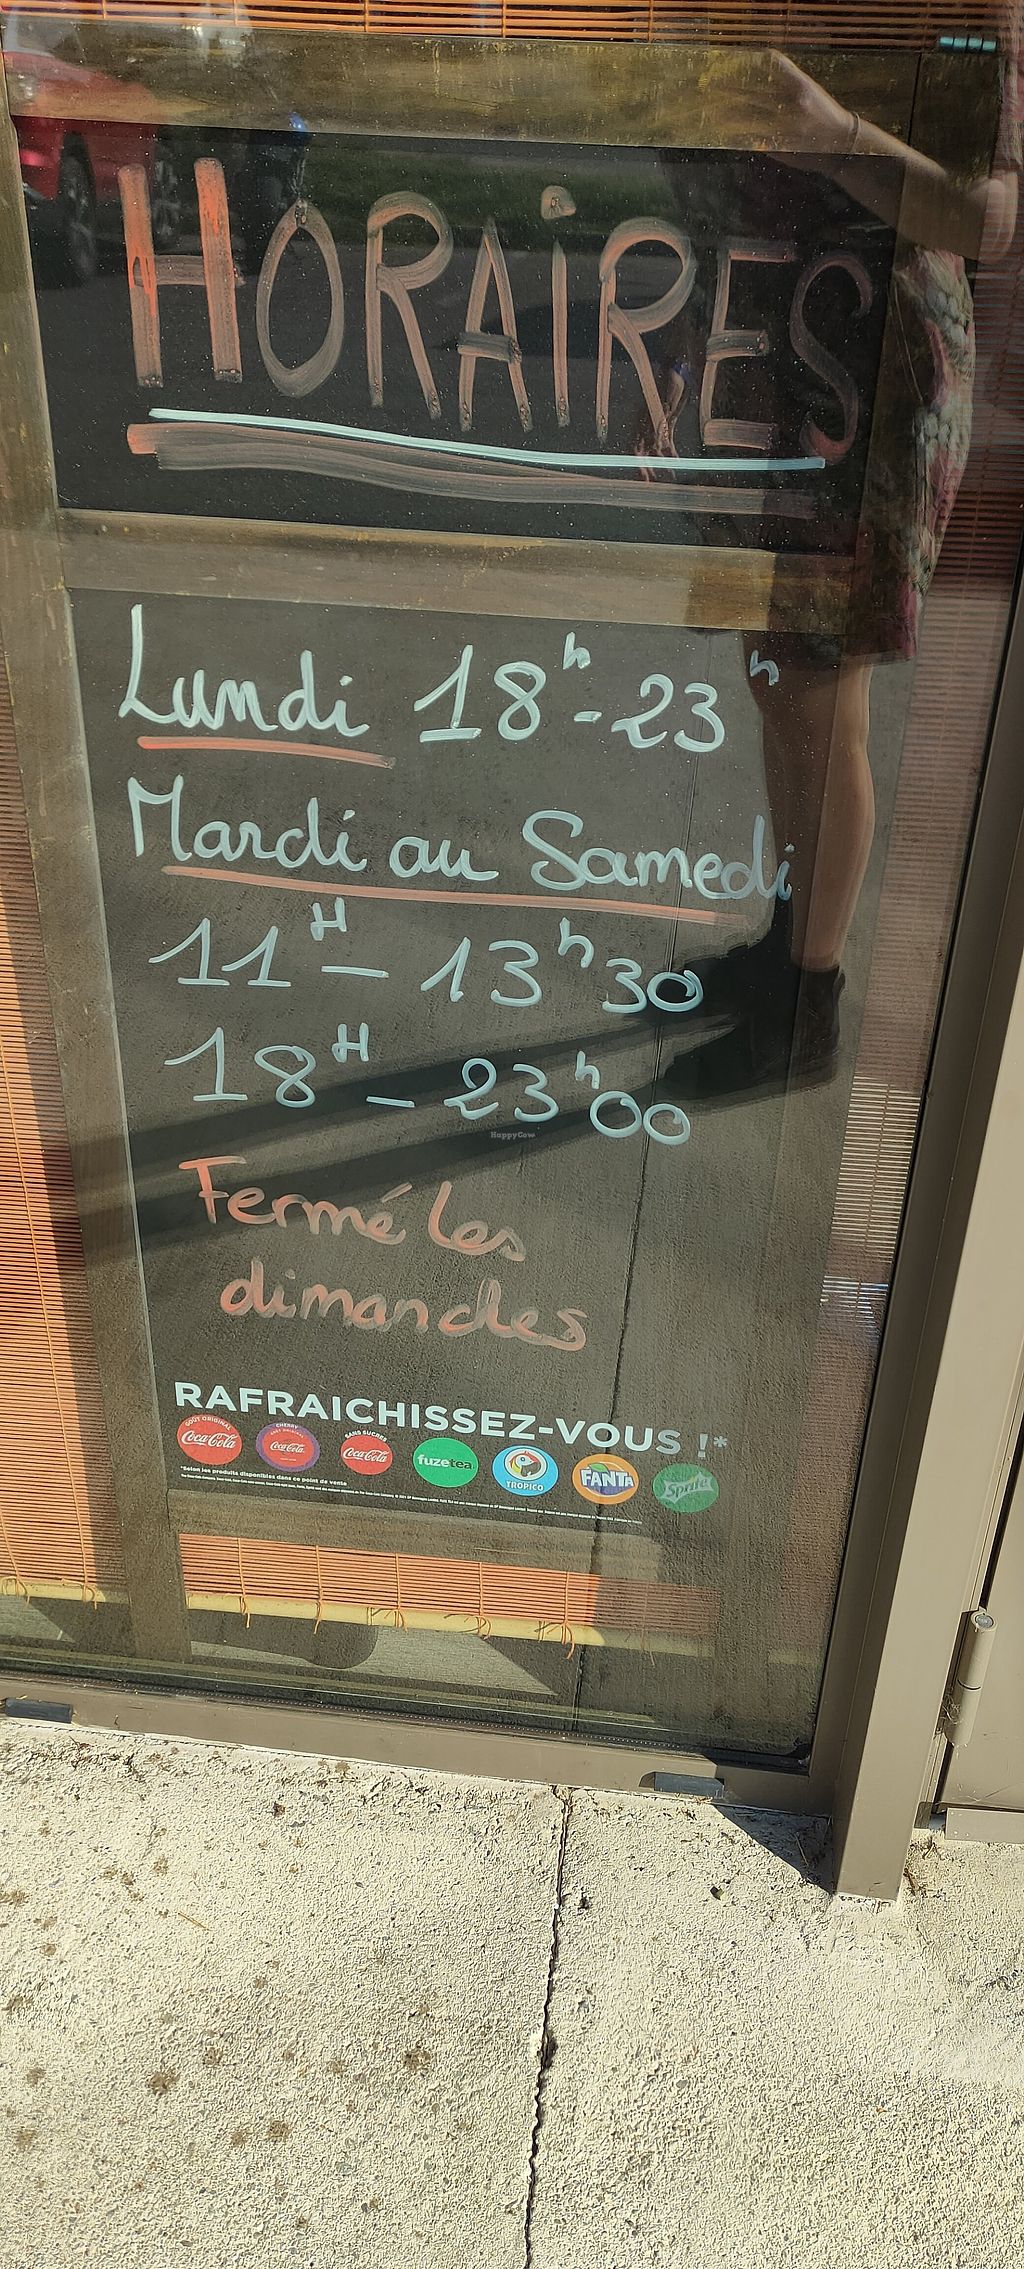 HORAiRES
Lundi 18h - 23h
Mardi au Samedi
11H - 13h30
18H - 23h00
Fermé les
dimanches
HappyCow
RAFRAICHISSEZ-VOUS !*
GOÛT ORIGINAL Coca-Cola CHERRY Coca-Cola SANS SUCRES Coca-Cola fuzetea TROPICO FANTA Sprite
*Selon les produits disponibles dans ce point de vente